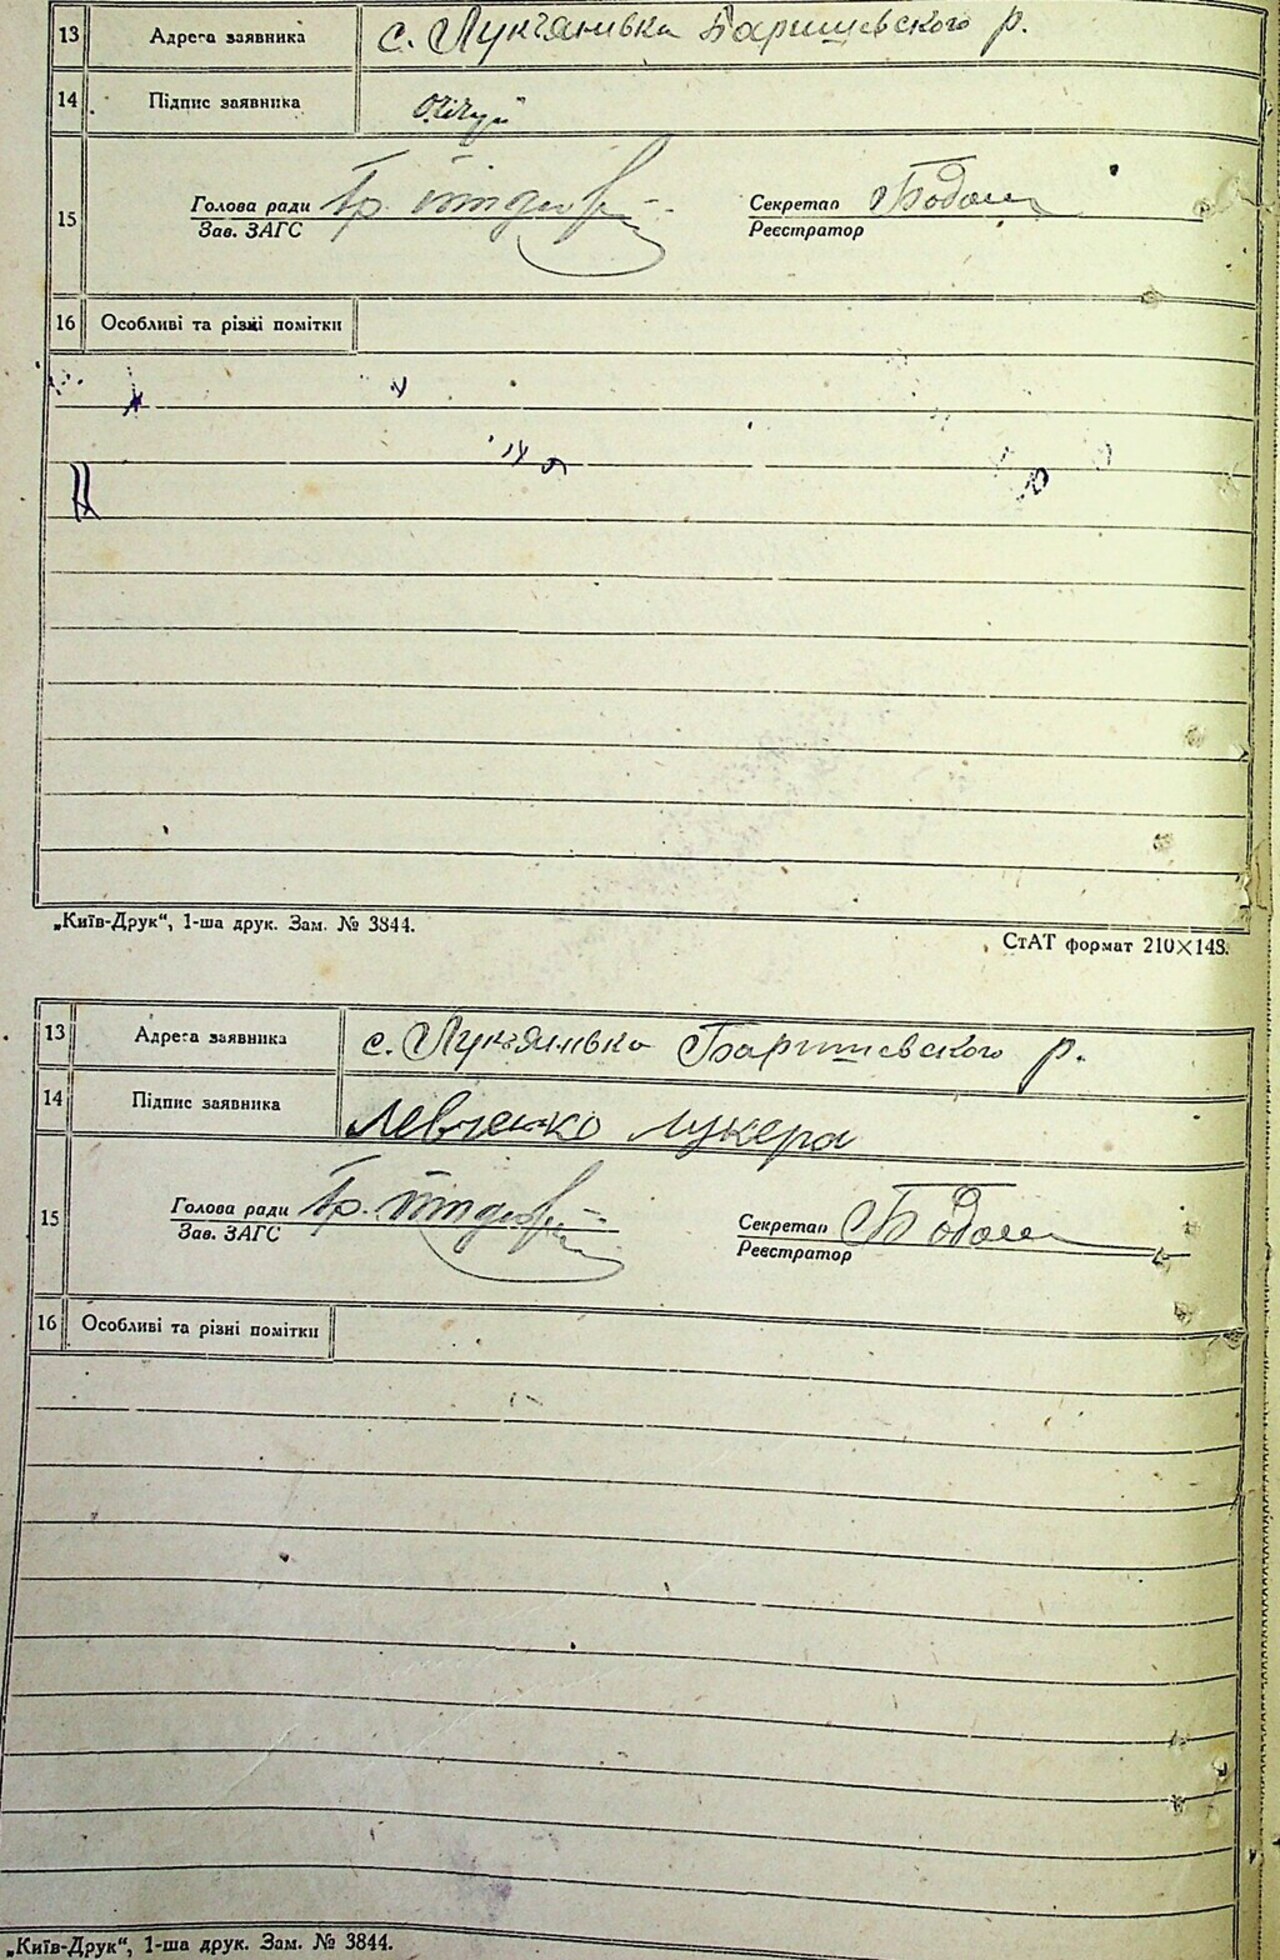 13 Адреса заявника с. Лук'янивка Баришевского р.
14 Підпис заявника
15 Голова ради Секретар
Зав. ЗАГС Реєстратор
16 Особливі та різні помітки
„Київ-Друк“, 1-ша друк. Зам. № 3844.
СтАТ формат 210×148.
13 Адреса заявника с. Лук'янивка Баришевского р.
14 Підпис заявника Левченко Лукера
15 Голова ради Секретар
Зав. ЗАГС Реєстратор
16 Особливі та різні помітки
„Київ-Друк“, 1-ша друк. Зам. № 3844.